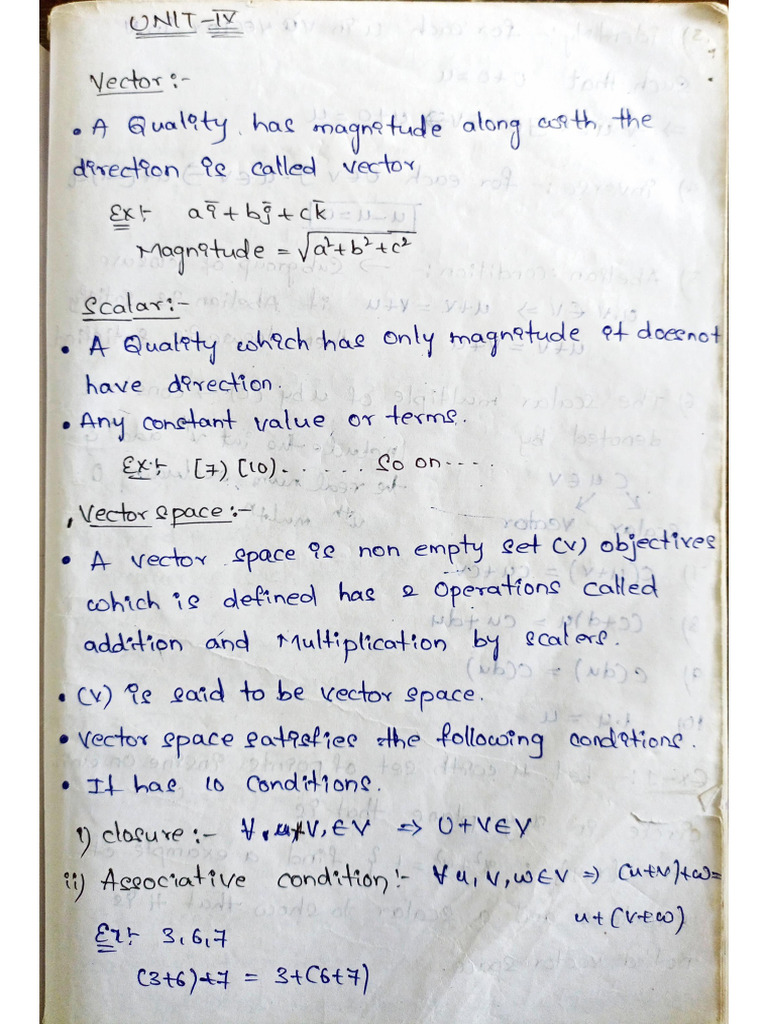 UNIT-IV
Vector:-
• A Quality has magnitude along with the
direction is called vector
Ex:- aī + bj̄ + ck̄
Magnitude = √a²+b²+c²
Scalar:-
• A Quality which has only magnitude it doesnot
have direction.
• Any constant value or terms.
Ex:- [7) [10)...... so on....
Vector space:-
• A vector space is non empty set (v) objectives
which is defined has 2 operations called
addition and Multiplication by scalers.
• (v) is said to be vector space.
• vector space satisfies the following conditions.
• It has 10 conditions.
i) closure:- ∀, u, V, ∈V ⇒ U+V∈V
ii) Associative condition:- ∀ u, v, w∈V ⇒ (u+v)+w=
u+(v+w)
Ex:- 3, 6, 7
(3+6)+7 = 3+(6+7)